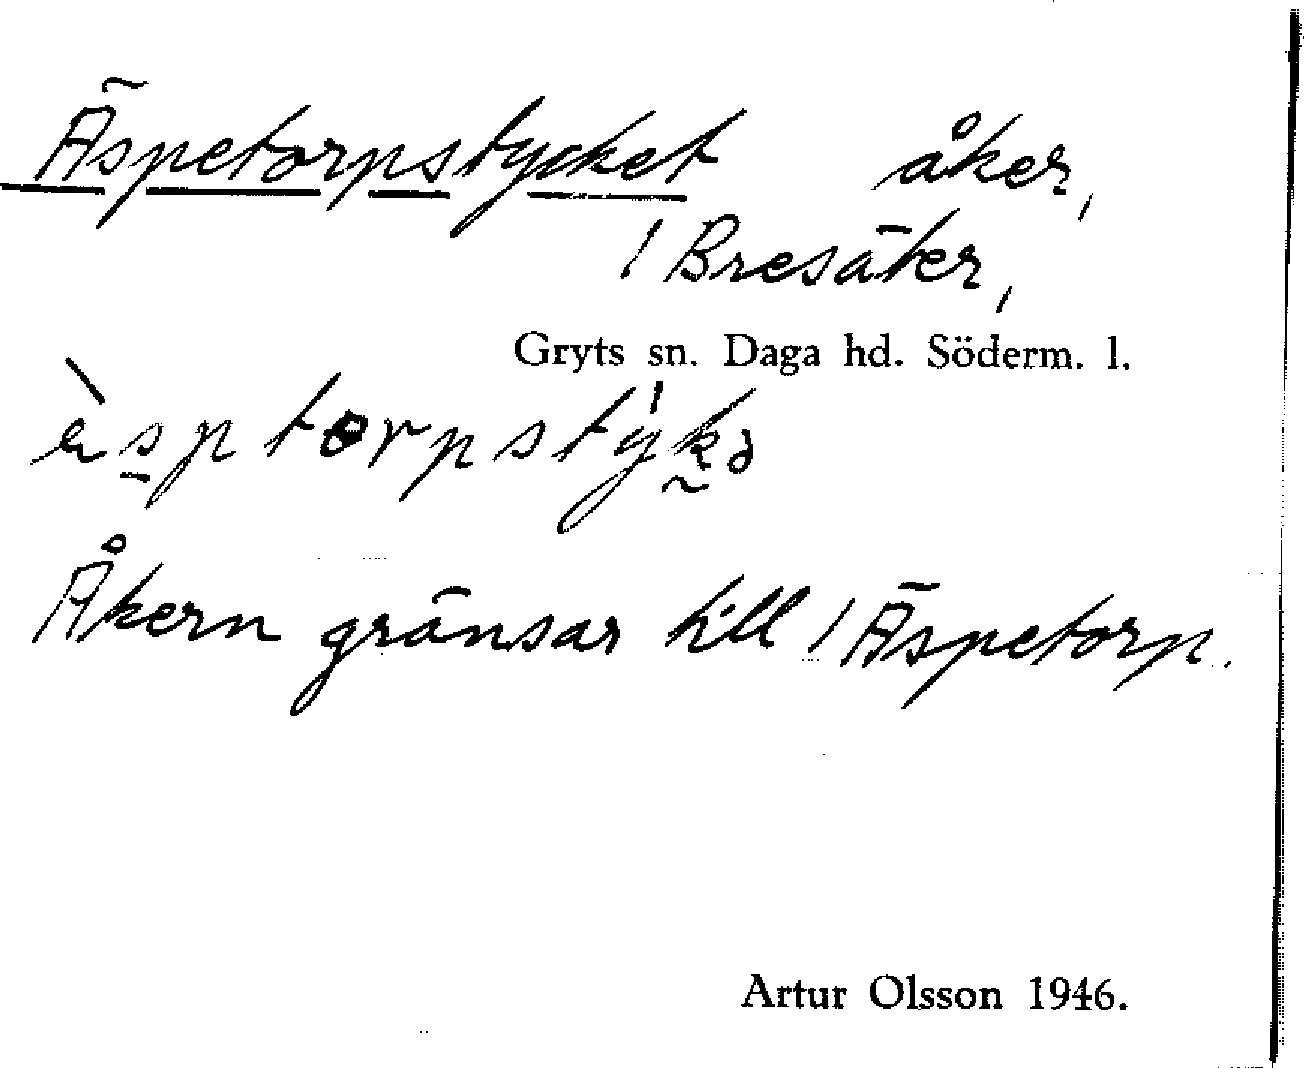 Äspetorpstycket åker,
/ Bresäter,
Gryts sn. Daga hd. Söderm. l.
Åkern gränsar till / Äspetorp.
Artur Olsson 1946.